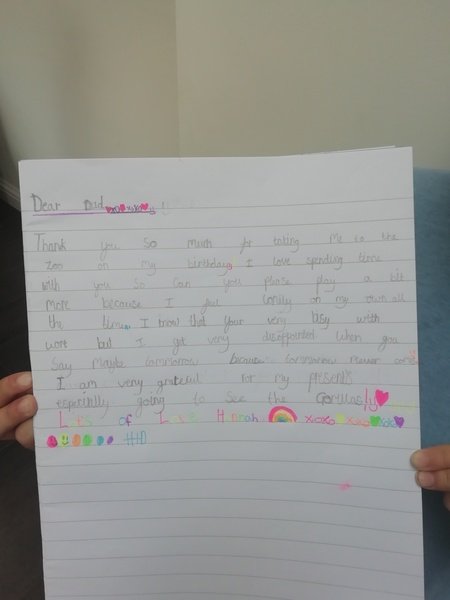 Dear Dad
Thank you so much for taking me to the
zoo on my birthday, I love spending time
with you so can you please play a bit
more because I feel lonley on my own all
the time, I know that your very busy with
work but I get very disappointed when you
Say Maybe tommorrow because tommorrow never comes
I am very gratefull for my presents
especihlly going to see the Gorillas!
Lots of Love Hannah xoxo xoxo xoxo
HD